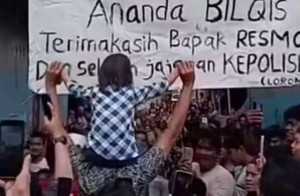 Ananda BILQIS
Terimakasih Bapak RESMO
Dan jajaran KEPOLISI